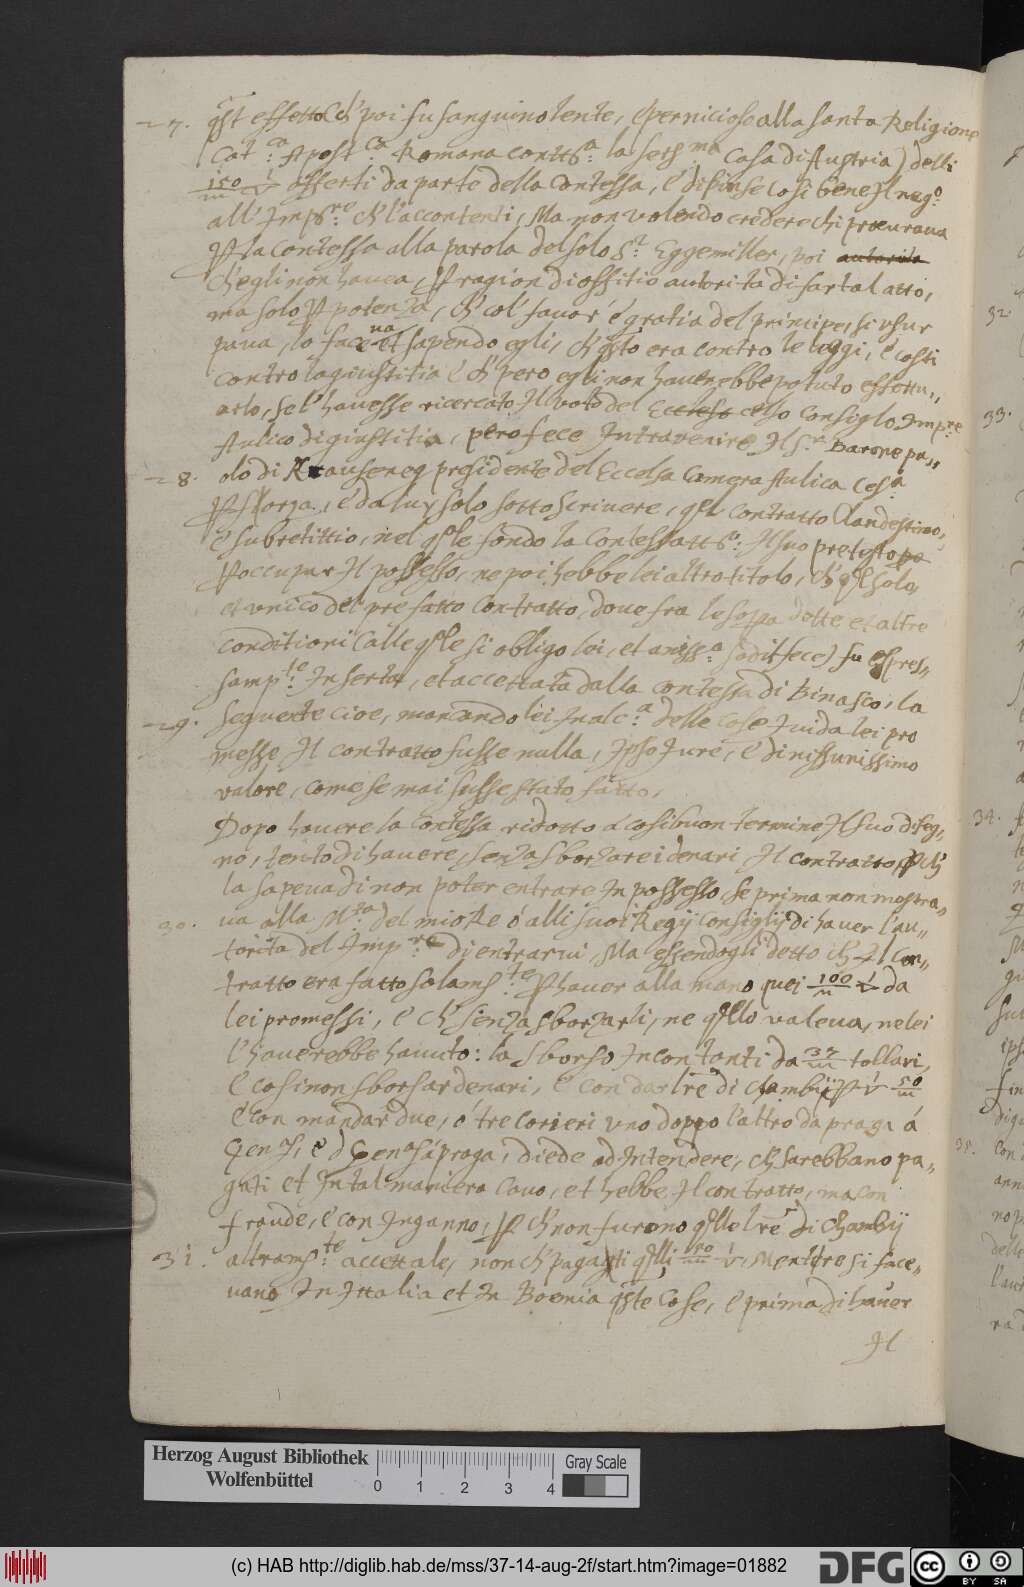 27. q̃st effetto ch' poi fu sanguinolente, e pernicioso alla santa Religione
Cat:ca Apost:ca Romana contts:a la Sers:ma Casa di Austria) delli
150/m offerti da parte della Contessa, e dipinse così bene Il neg:o
all' Imp:re ch' l'accontenti, Ma non volendo credere chi procurava
P la Contessa alla parola del solo S:r Eggemiller, poi autorità
ch' egli non haueva, P ragion di offitio autorita di far tal atto,
ma solo P potenza, ch' col' fauor' e gratia del principe, si vsur
paua, lo faceua et sapendo egli, ch' q̃sto era contro le leggi, e costi
contro la giustitia e ch' pero egli non hauerebbe potuto effettu,,
arlo, se l' hauesse ricercato Il voto del Eccelso Consiglo Imp:re
Aulico di giustitia, pero fece Intrauenire Il S:r Barone pa,,
28. olo di Krauseneg presidente del Eccelsa Camera Aulica Ces:a
P sforza, e da luy solo sottoscriuere, q̃l contratto Clandestino,,
e subretittio, nel q̃le fondo la Contessa tts:a Il suo pretesto
P occupar Il possesso, ne poi hebbe lei altro titolo, ch' q̃l solo,
et vnico del prefatto Contratto, doue fra le sopra dette et altre
conditioni (alle q̃le si obligo lei, et aniss:a sodisfece) fu espres,,
samp:te Inserta, et accettata dalla Contessa di Binasco, la
29. seguente cioe, mancando lei In alc:a delle cose Iui da lei pro
messe Il contratto fusse nullo, Ipso Iure, e di nissunissimo
valore, come se mai fusse stato fatto,
Dopo hauere la Contessa ridotto a cosi buon termine Il suo diseg,,
no, tento di hauere, senza sborzare i denari Il contratto, P ch'
la sapeua di non poter entrare In possesso, se prima non mostra,,
30. ua alla M:ta del mio Re ò alli suoi Regij Consiglij di hauer l'au,,
torita del Imp:re di entrarui, Ma essendogli detto ch' Il Con,,
tratto era fatto solams:te P hauer alla mano quei 100/m da
lei promessi, e ch' senza sborzarli, ne q̃llo valeua, ne lei
l'hauerebbe hauuto: la sborso In contanti da 37/m tollari,
e così non sborsar denari, e con dar lre di Chambij P 50/m
e con mandar due, ó tre Corieri vno doppo l'altro da praga á
Gen:a, e d Gen:a á praga, diede ad Intendere, ch' sarebbano pa,,
gati et In tal maniera Cauo, et hebbe Il contratto, ma con
fraude, e con Inganno, P ch' non furono q̃lle lre di Chambij
31. altrams:te accettate, non ch' pagati q̃lli 50/m Mentre si face,,
uano In Ittalia et In Boemia q̃ste Cose, e prima di hauer
Il
32.
33.
34.
35.
Herzog August Bibliothek
Wolfenbüttel
0 1 2 3 4
Gray Scale
(c) HAB http://diglib.hab.de/mss/37-14-aug-2f/start.htm?image=01882
DFG
cc BY SA